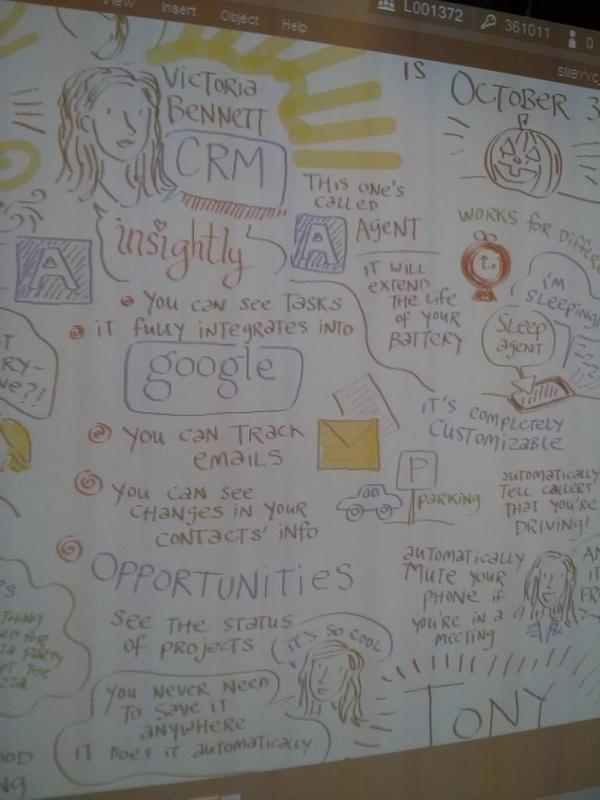 View Insert Object Help
L001372 361011 0
VICTORIA
BENNETT
CRM
insightly
A
YOU CAN SEE TASKS
IT FULLY INTEGRATES INTO
google
YOU CAN TRACK
EMAILS
YOU CAN SEE
CHANGES IN YOUR
CONTACTS' INFO
OPPORTUNITIES
SEE THE STATUS
OF PROJECTS
IT'S SO COOL
YOU NEVER NEED
TO SAVE IT
ANYWHERE
IT DOES IT AUTOMATICALLY.
IS
OCTOBER 3
THIS ONE'S
CALLED
A AGENT
IT WILL
EXTEND
THE LIFE
OF YOUR
BATTERY
WORKS FOR
I'M
SLEEPING!
SLEEP
AGENT
ZZZ
IT'S COMPLETELY
CUSTOMIZABLE
P
PARKING
AUTOMATICALLY
TELL CALLERS
THAT YOU'RE
DRIVING!
AUTOMATICALLY
MUTE YOUR
PHONE IF
YOU'RE IN A
MEETING
TONY